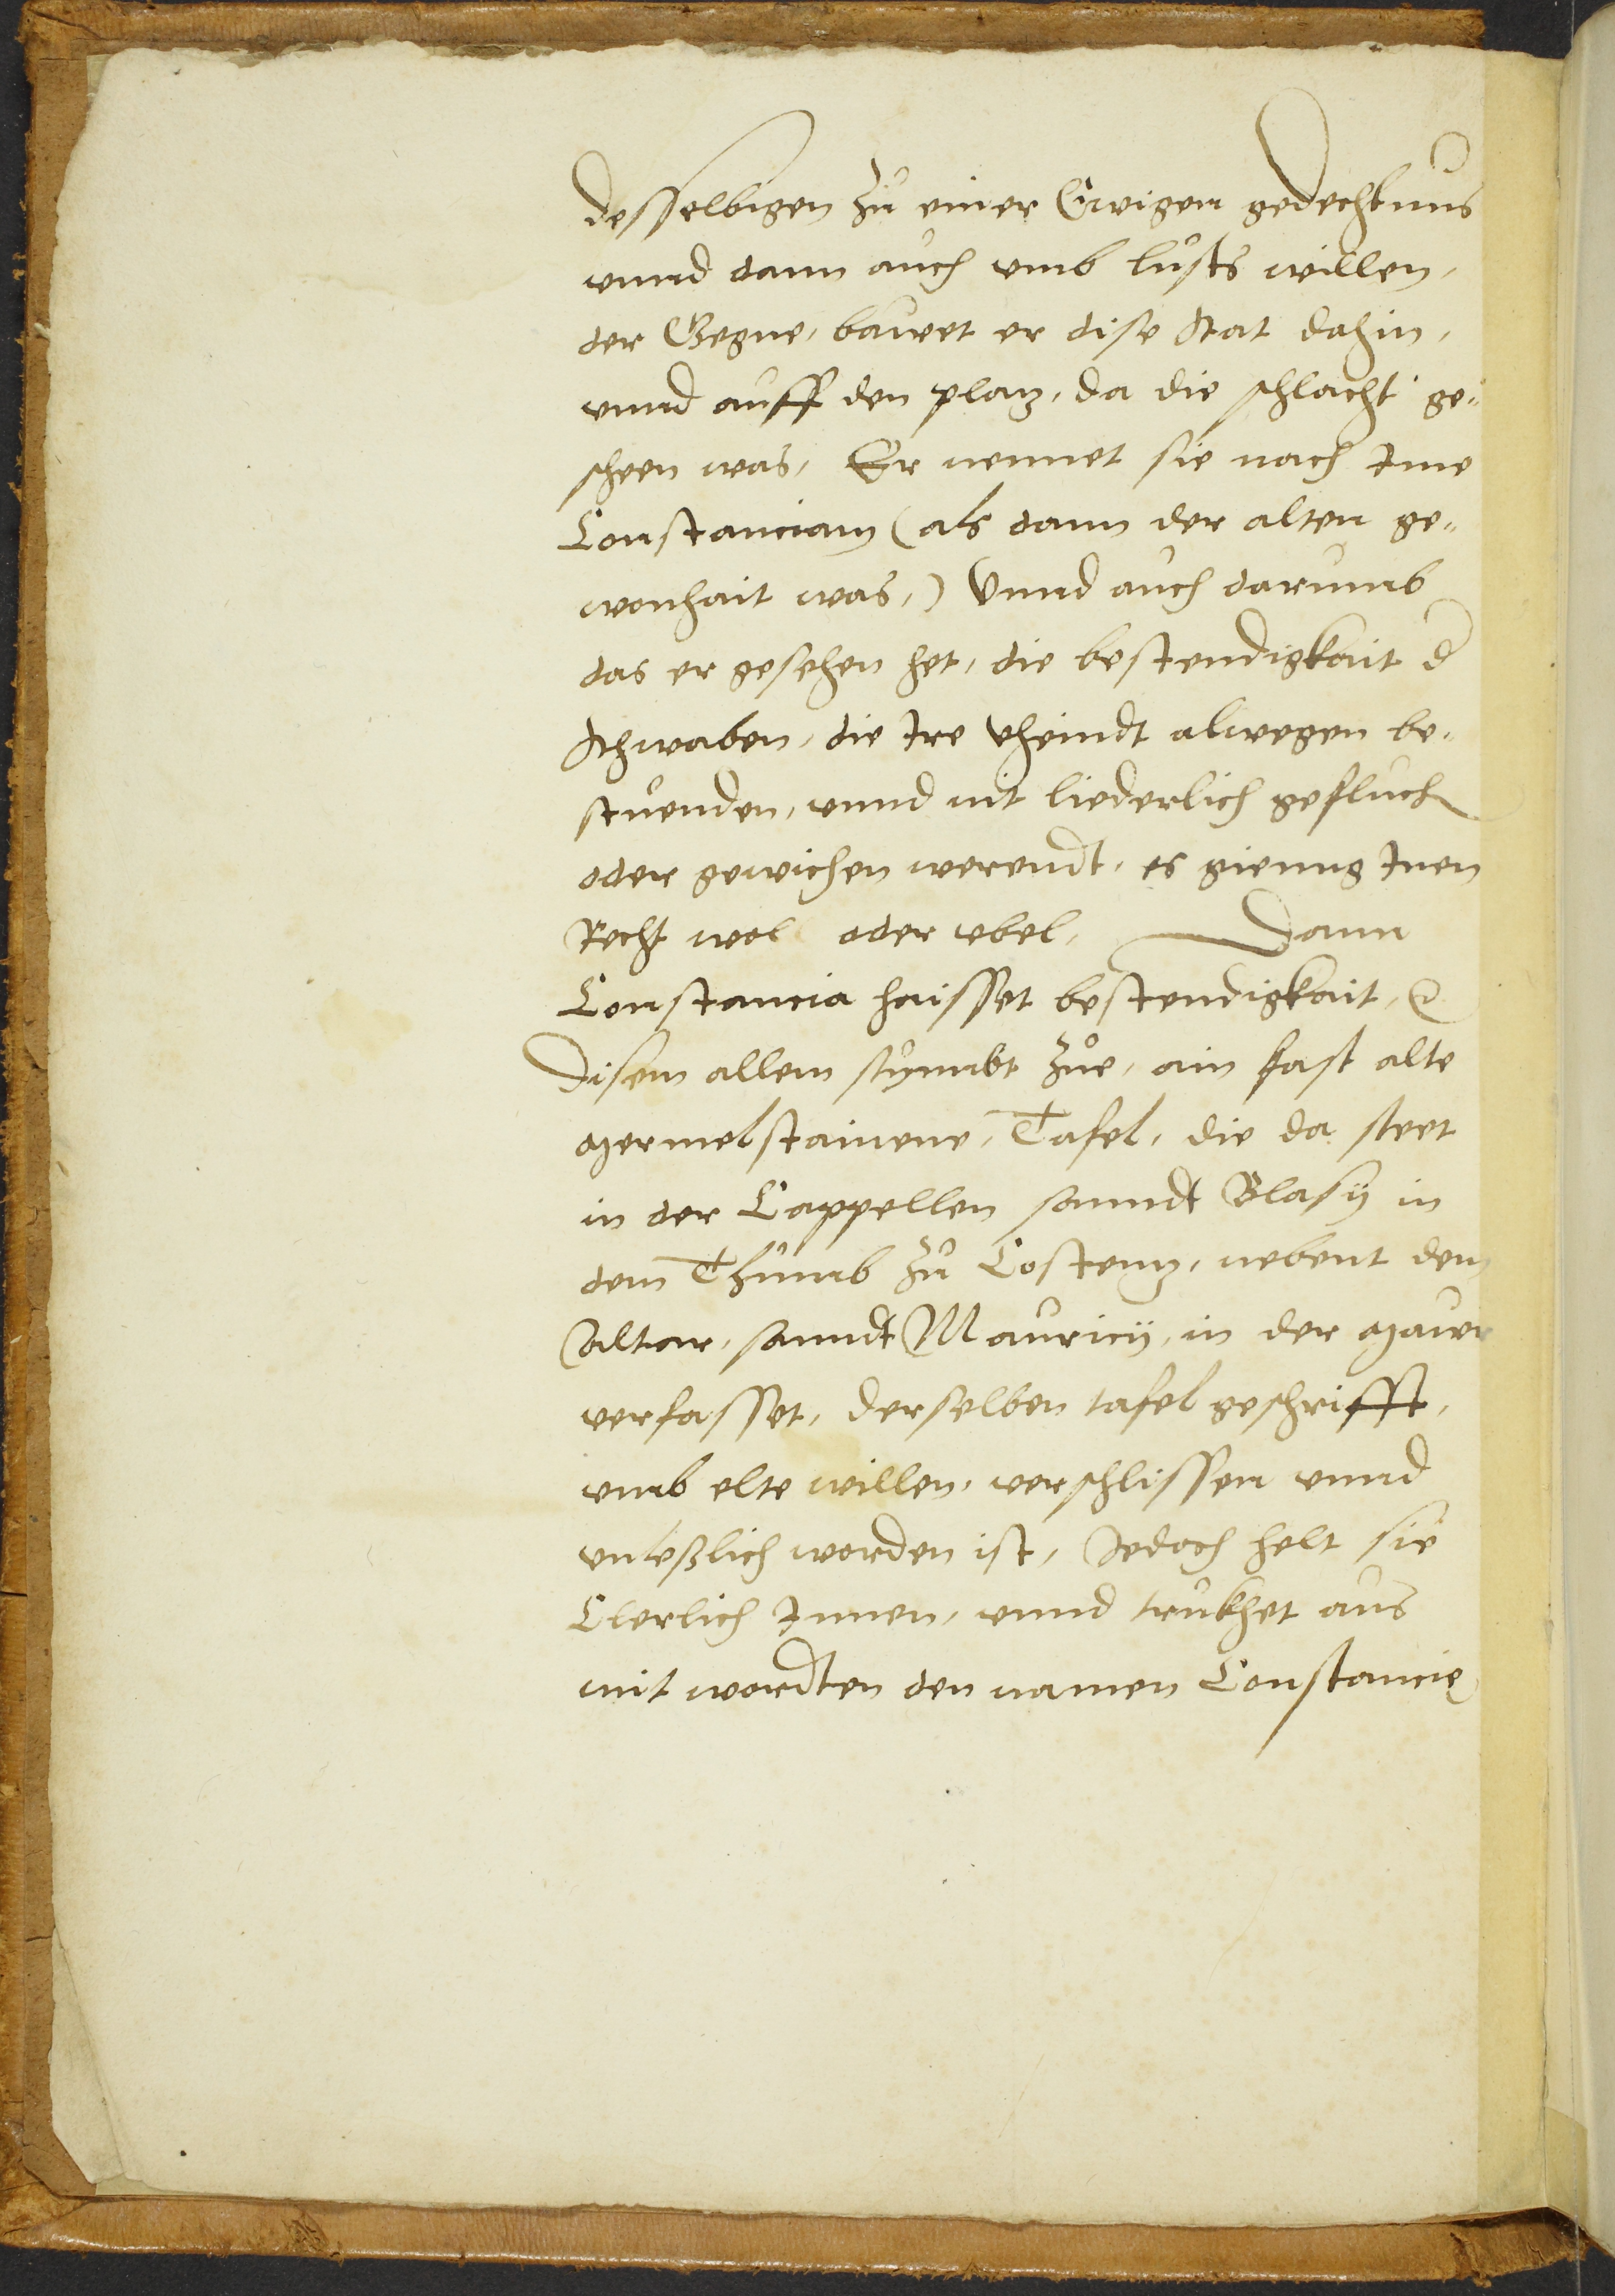 desselbigen zů einer Ewigen gedechtnus
vnnd dann auch vmb lusts willen,
der Gegne, bauwet er dise Stat dahin,
vnnd auff den plaz, da die schlacht ge„
scheen was, Er nennet sie nach Ime
Constanciam (als dann der alten ge„
wonhait was,) Vnnd auch darumb
das er gesehen het, die bestendigkait d
Schwaben, die Ire vheindt alwegen be„
stuenden, vnnd nit liederlich gefluch
oder gewichen werendt, es gienng Inen
Recht wol oder vbel, Dann
Constancia haisset bestendigkait,
Disem allem stymbt zůe, ain fast alte
mermelstainene, Tafel, die da steet
in der Cappellen sanndt Blasy in
dem Thůmb zů Costenz, nebent dem
Altar, sanndt Mauricij, in der maur
verfasset, derselben tafel geschrifft,
vmb elte willen, verschlissen vnnd
vnleßlich worden ist, Jedoch helt sie
Clerlich Innen, vnnd trukhet aus
mit wordten den namen Constancię